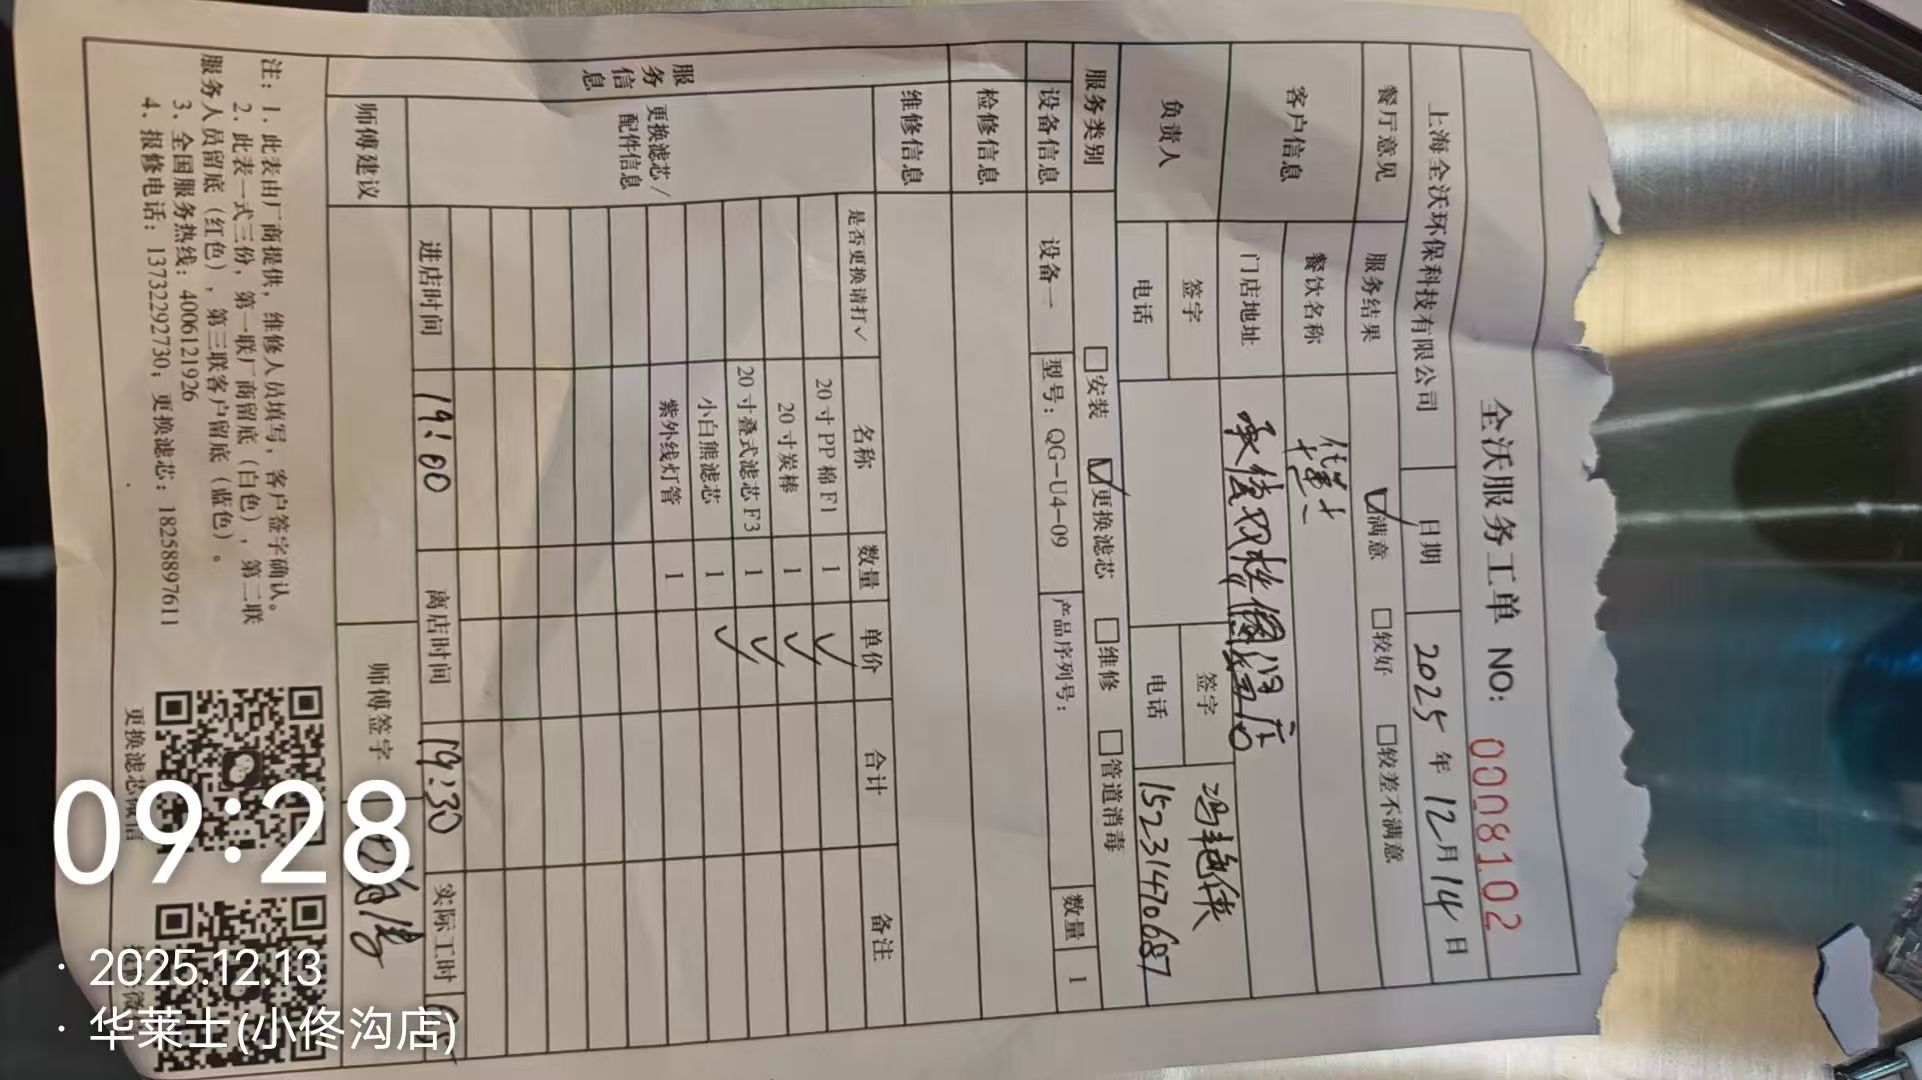 全沃服务工单 NO: 0008102
上海全沃环保科技有限公司 日期 2025年12月14日
餐厅意见 服务结果 ☑满意 □较好 □较差不满意
客户信息 餐饮名称 华莱士
门店地址
负责人 签字 签字
电话 电话 15231470687
服务类别 □安装 ☑更换滤芯 □维修 □管道消毒
设备信息 设备一 型号：QG-U4-09 产品序列号： 数量 1
检修信息
维修信息
服务信息
更换滤芯/配件信息
是否更换请打✓ 名称 数量 单价 合计 备注
20寸PP棉F1 1 ✓
20寸炭棒 1 ✓
20寸叠式滤芯F3 1 ✓
小白熊滤芯 1 ✓
紫外线灯管 1
进店时间 19:00 离店时间 19:30 实际工时
师傅建议 师傅签字
注：1、此表由厂商提供，维修人员填写，客户签字确认。
2、此表一式三份，第一联厂商留底（白色），第二联
服务人员留底（红色），第三联客户留底（蓝色）。
3、全国服务热线：4006121926
4、报修电话：13732292730；更换滤芯：18258897611
更换滤芯微信
09:28
· 2025.12.13
· 华莱士(小佟沟店)